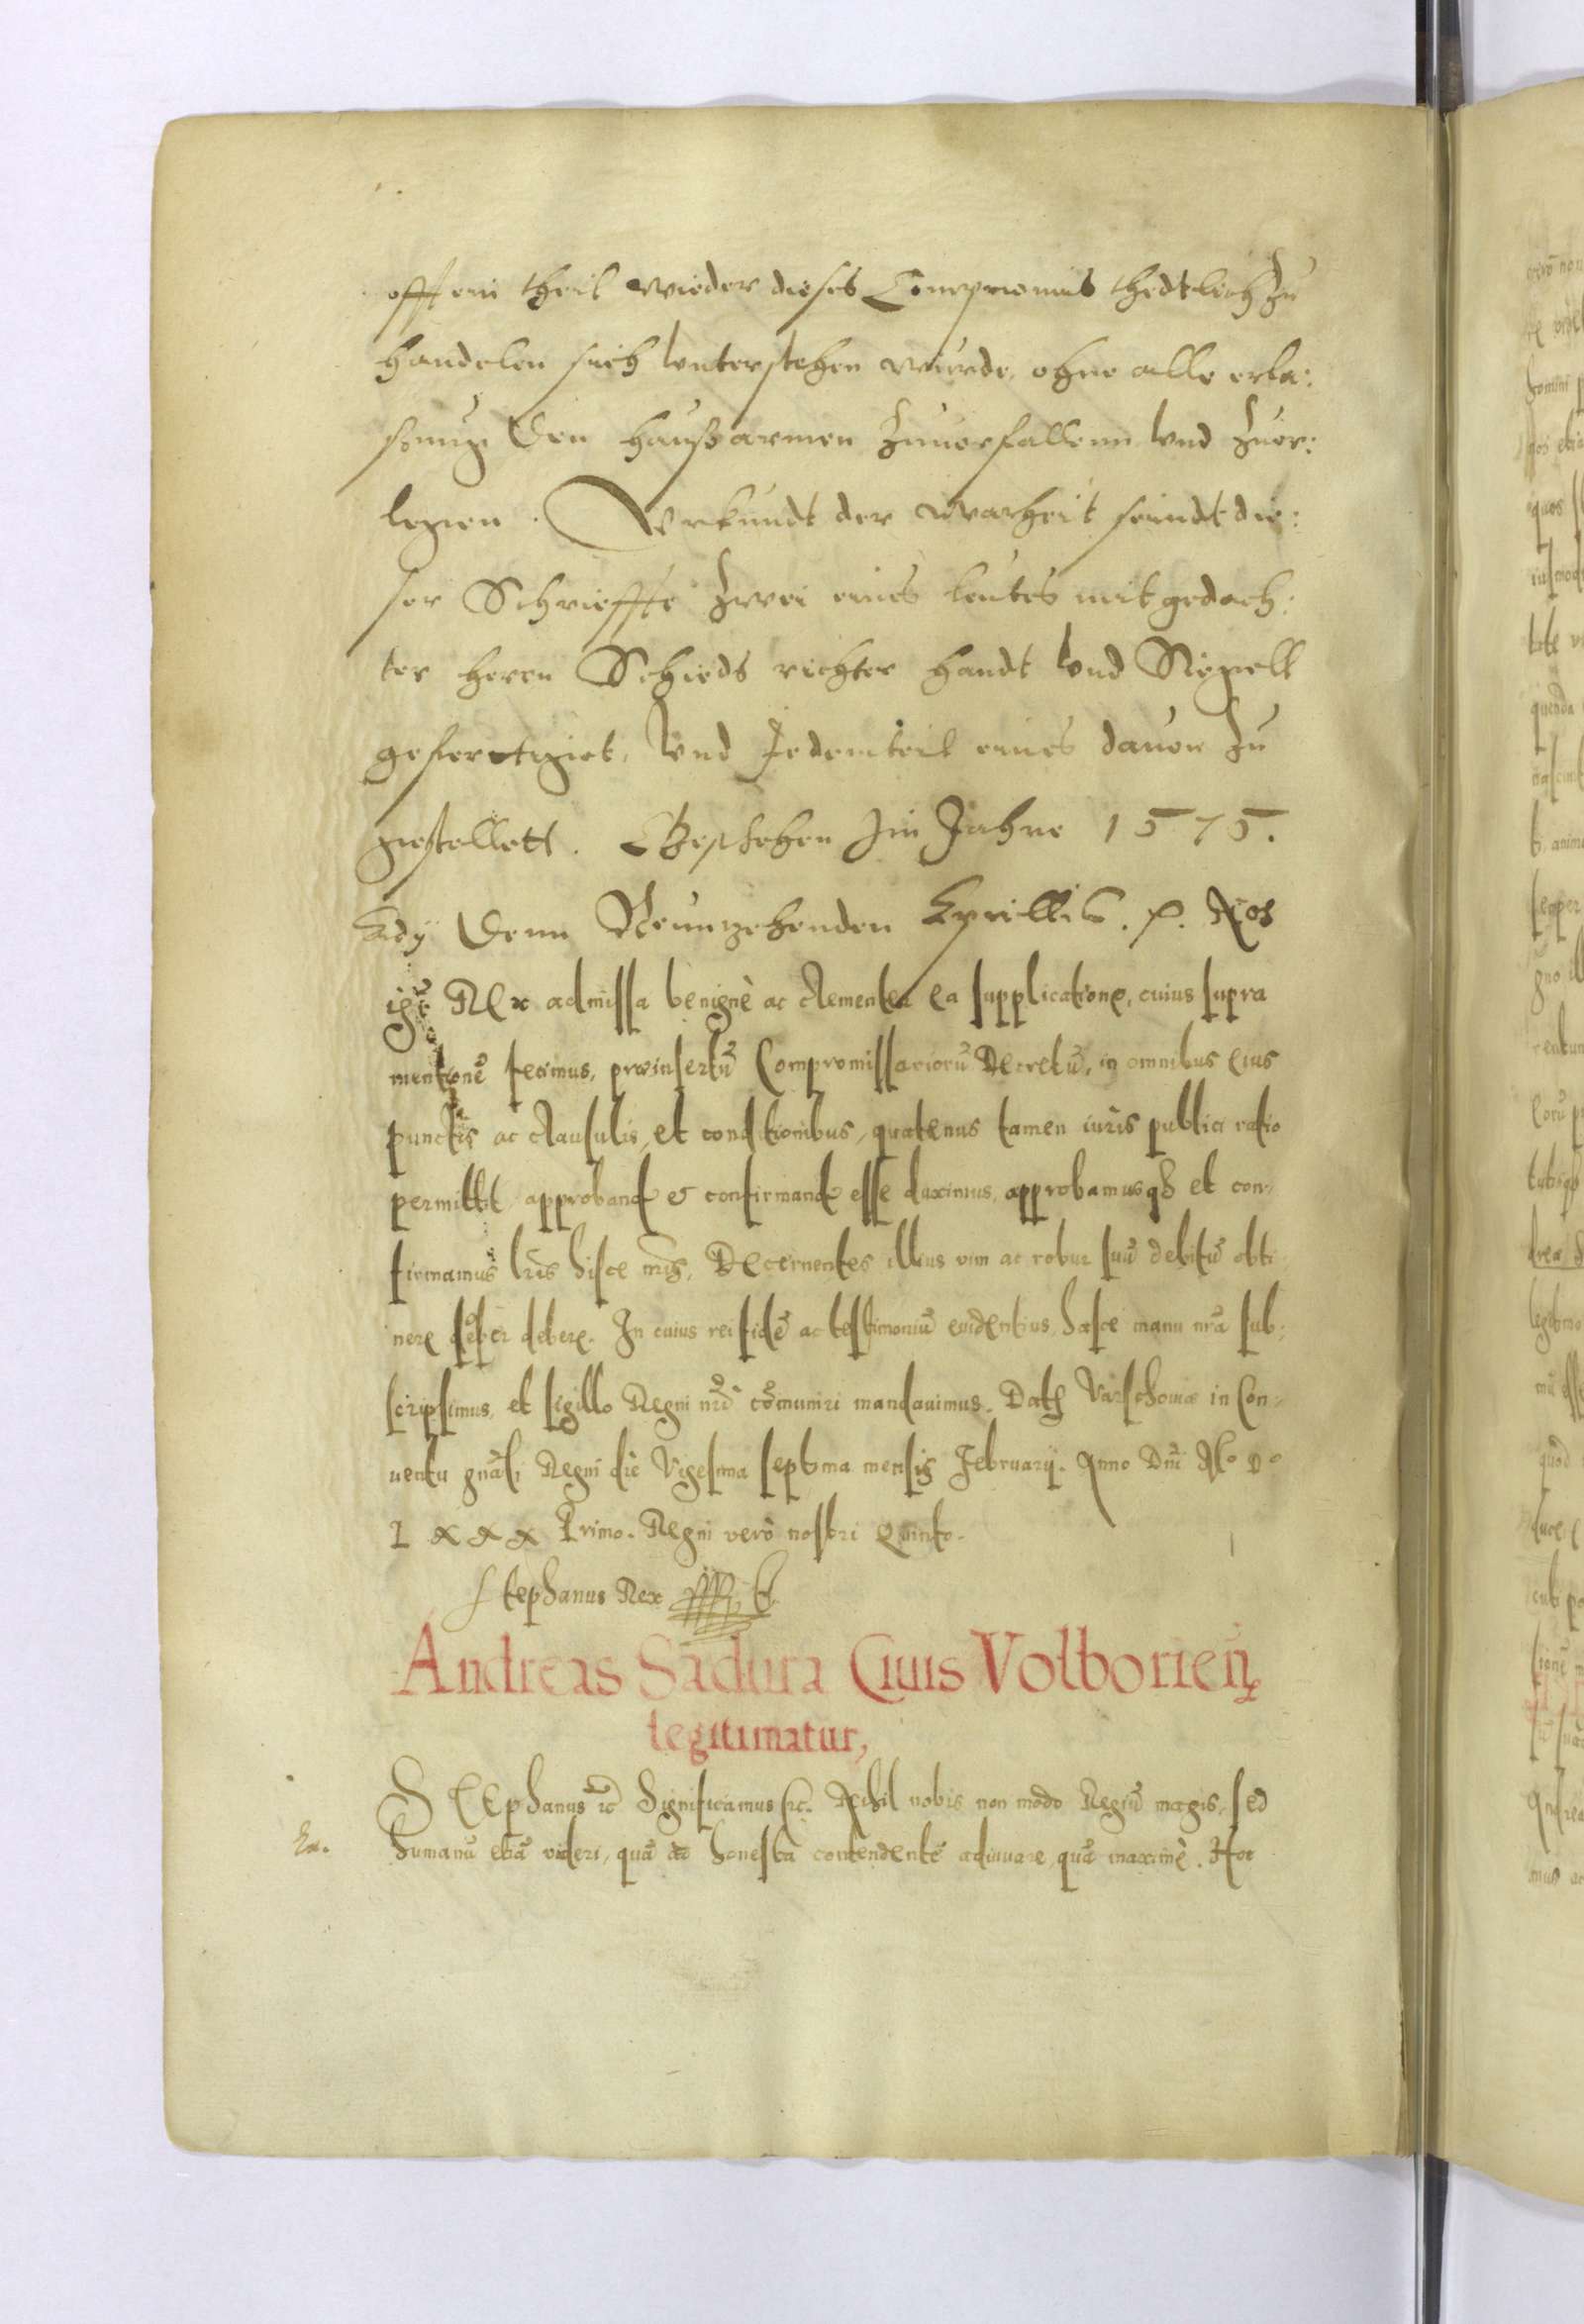 offt ein theil wieder dieses Compromis thedtlich zu
handelen sich vnterstehen wurde, ohne alle erla:
sunng den haußarmen zuuorfallenn vnd zuer:
legen. Vrkundt der warheit seindt die:
ser Schriffte zwei eines lautes mit gedach:
ter heren Schieds richter handt vnd Siegell
gefertigiet, vnd Jedemteil eines dauon zu
gestellett. Geschehen Im Jahre 1575.
Ady denn Neunzehenden Aprillis. Nos
igr̃ Rex admissa benignè ac clementer ea supplicatione, cuius supra
mentionẽ fecimus, præinsertũ Compromissariorũ Decretũ, in omnibus eius
punctis ac clausulis, et conditionibus, quatenus tamen iuris publici ratio
permittit, approband et confirmand esse duximus, approbamusq3 et con-
firmamus lr̃is hisce nr̃is, Decernentes illius vim ac robur suũ debitũ obti
nere semper debere. In cuius rei fidẽ ac testimoniũ euidentius, hasce manu nr̃a sub-
scripsimus, et sigillo Regni nr̃i cõmuniri mandauimus. Dat Varschouiæ in Con-
uentu gnãli Regni die Vigesima septima mensis Februarij. Anno Dñi Mo Do
LXXX Primo. Regni verò nostri Quinto.
Stephanus Rex
Andreas Sadura Ciuis Volborien̄
legitimatur,
Stephanus etc̃ Significamus etc. Nihil nobis non modo Regiũ magis, sed
humanũ etiã videri, quã ad honesta contendentẽ adiuuare, quã maximè. Hoc